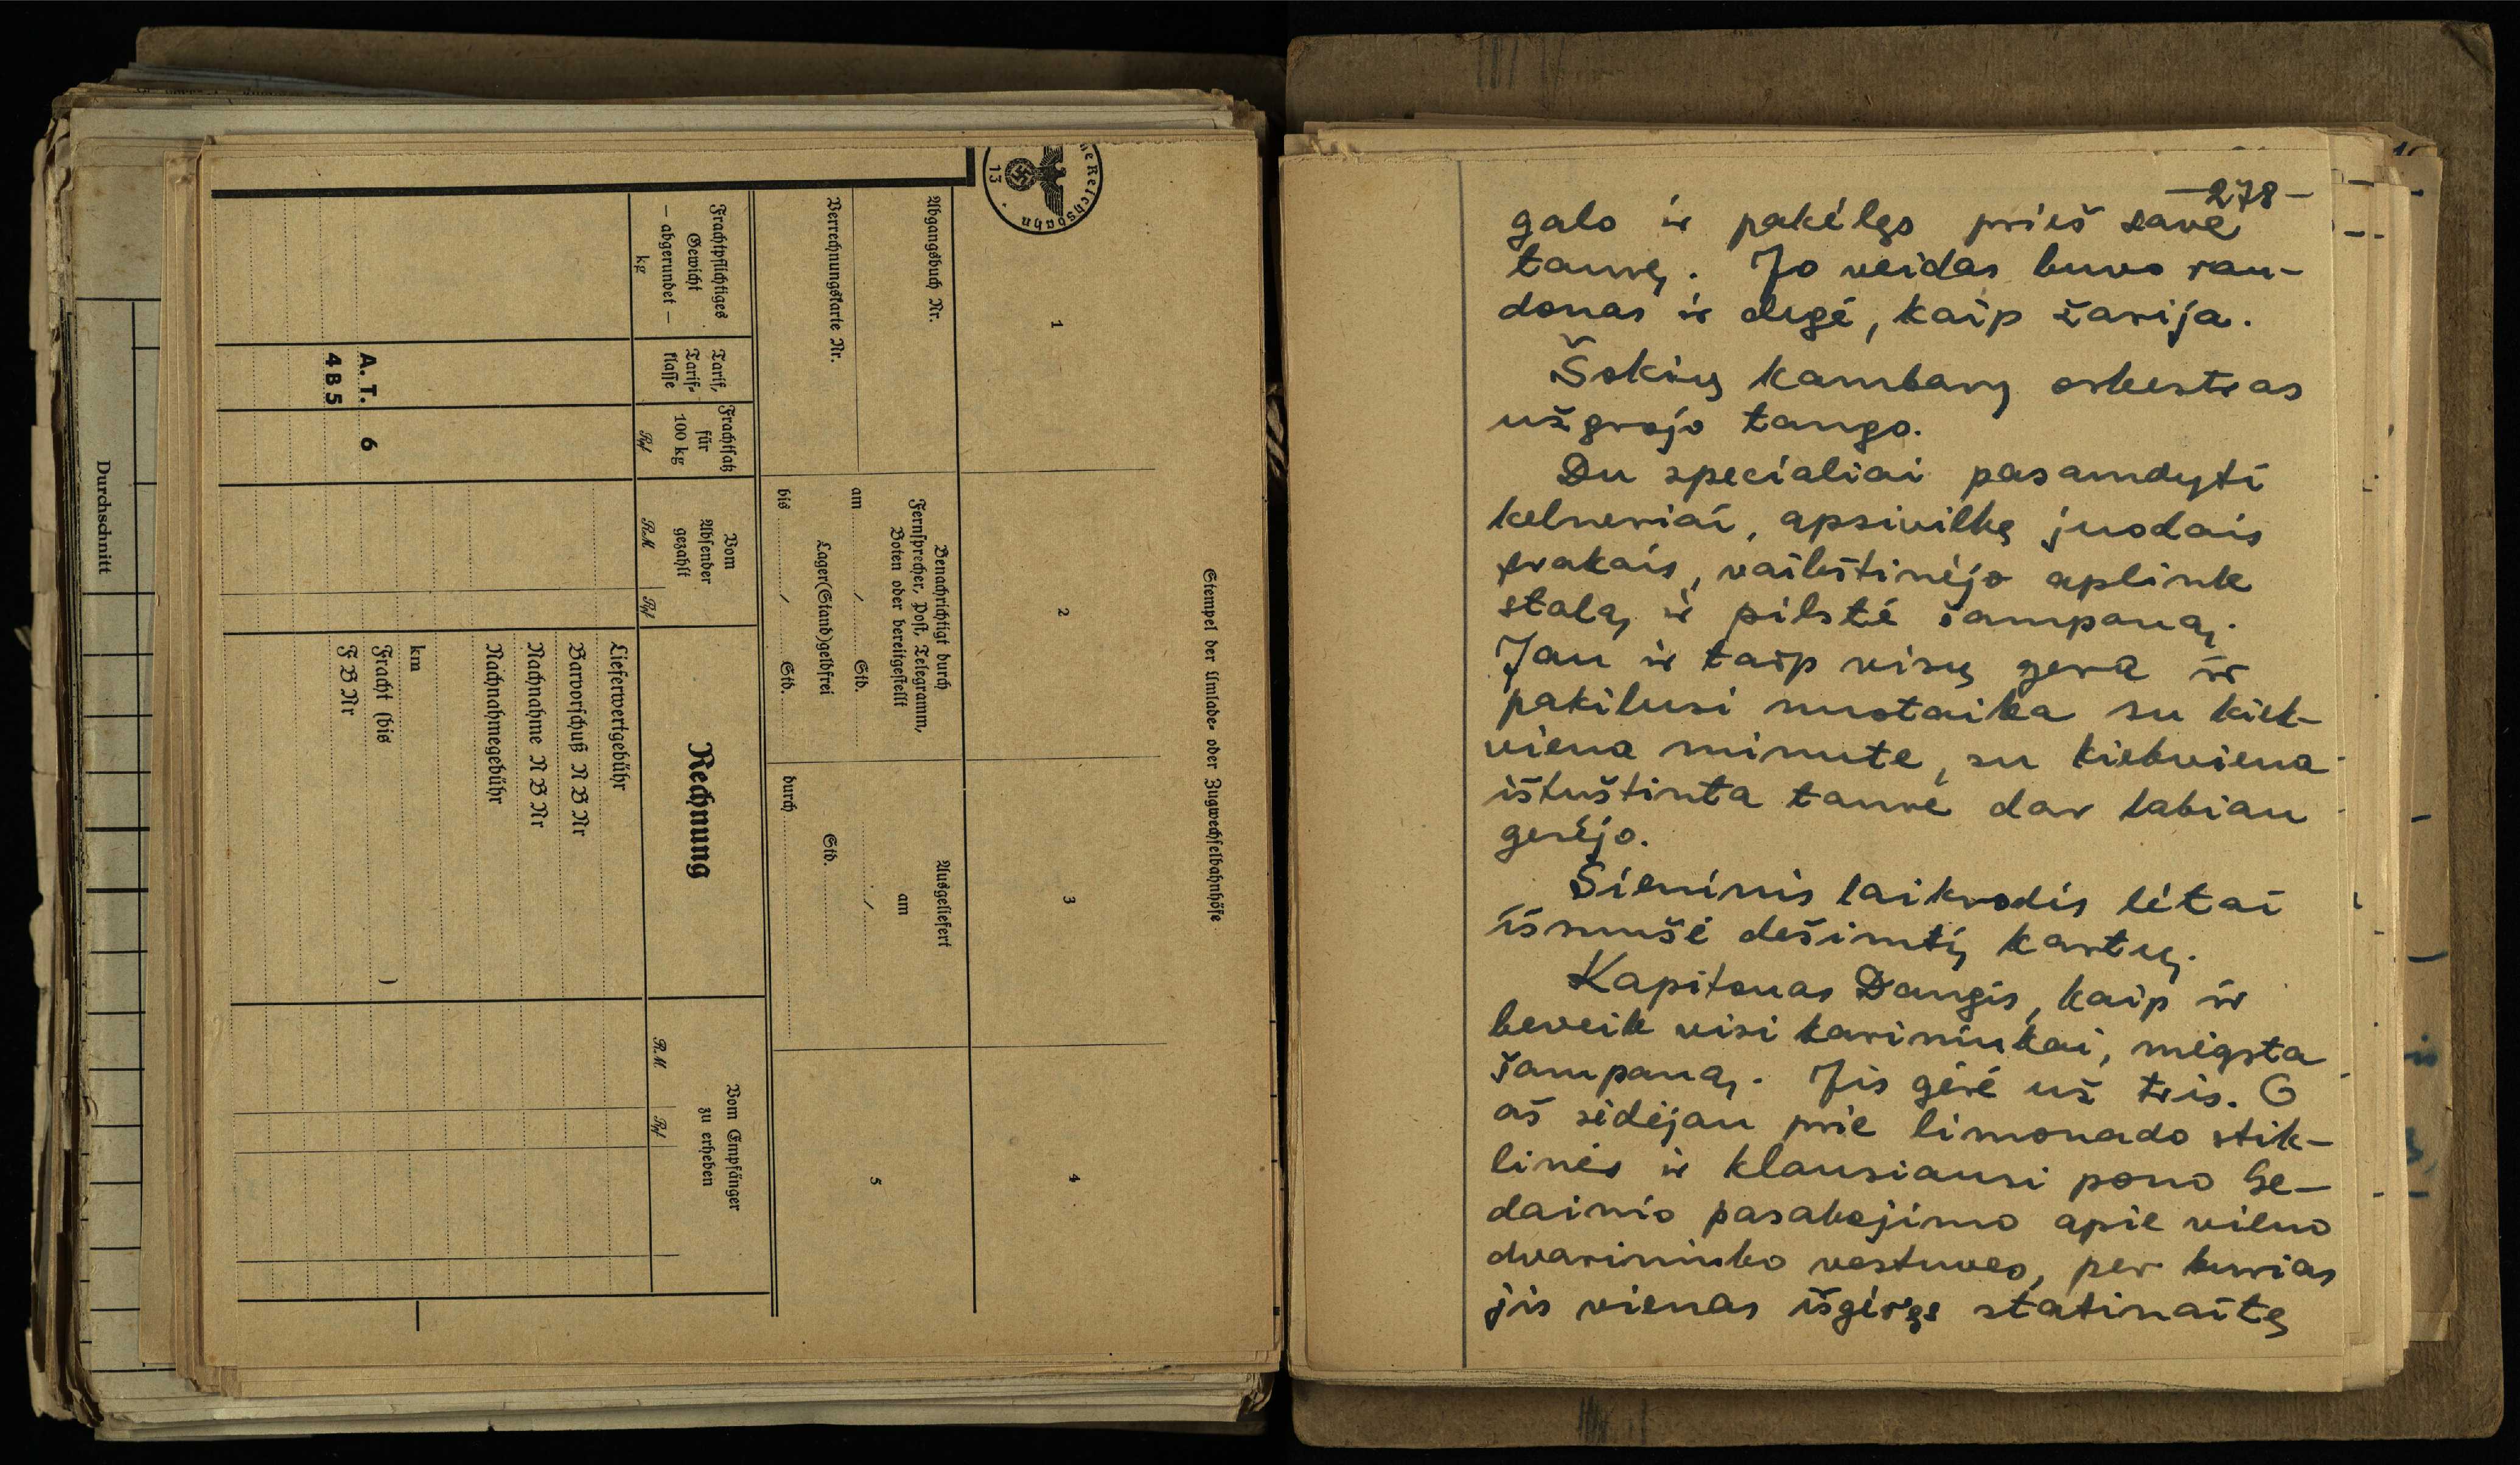 Durchschnitt
Stempel der Umlade- oder Zugwechselbahnhöfe
1
2
3
4
5
13
Abgangsbuch Nr.
Verrechnungskarte Nr.
Benachrichtigt durch
Fernsprecher, Post, Telegramm,
Boten oder bereitgestellt
am / Std.
Lager(Stand)geldfrei
bis / Std.
Ausgeliefert
am
/
Std.
durch
Frachtpflichtiges
Gewicht
— abgerundet —
kg
Tarif,
Tarif-
klasse
Frachtsatz
für
100 kg
Rpf
Vom
Absender
gezahlt
RM Rpf
Rechnung
Vom Empfänger
zu erheben
RM Rpf
Lieferwertgebühr
Barvorschuß N B Nr
Nachnahme N B Nr
Nachnahmegebühr
km
A. T. 6 Fracht (bis )
4 B 5 F B Nr
—278—
galo ir pakėlęs prieš save
taurę. Jo veidas buvo rau-
donas ir degė, kaip žarija.
Šokių kambarį orkestras
užgrojo tango.
Du specialiai pasamdyti
kelneriai, apsivilkę juodais
frakais, vaikštinėjo aplink
stalą ir pilstė šampaną.
Jau ir taip visų gera ir
pakilusi nuotaika su kiek-
viena minute, su kiekviena
ištuštinta taure dar labiau
gerėjo.
Sieninis laikrodis lėtai
išmušė dešimtį kartų.
Kapitonas Dangis, kaip ir
beveik visi kariniukai, mėgsta
šampaną. Jis gėrė už tris. O
aš sėdėjau prie limonado stik-
linės ir klausiausi pono Ge-
dainio pasakojimo apie vieno
dvarininko vestuves, per kurias
jis vienas išgėręs statinaitę